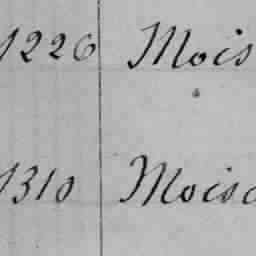 1226 Mois
1310 Moisa